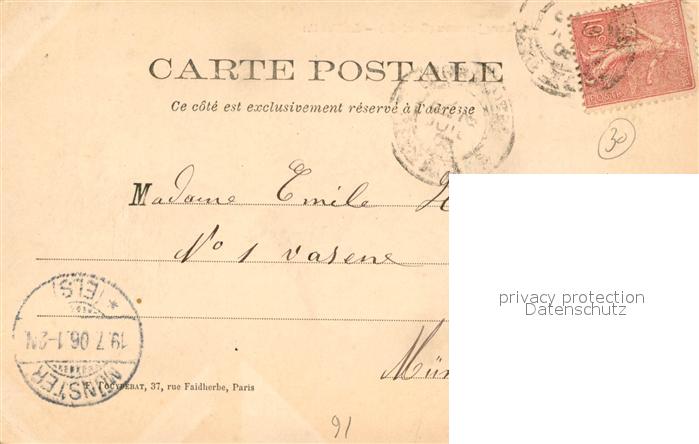 CARTE POSTALE
Ce côté est exclusivement réservé à d'adresse
30
Madame Emile
No 1 vasene
privacy protection
Datenschutz
MÜNSTER (ELS)
19.7.06.1-2N.
Mün
37, rue Faidherbe, Paris
91